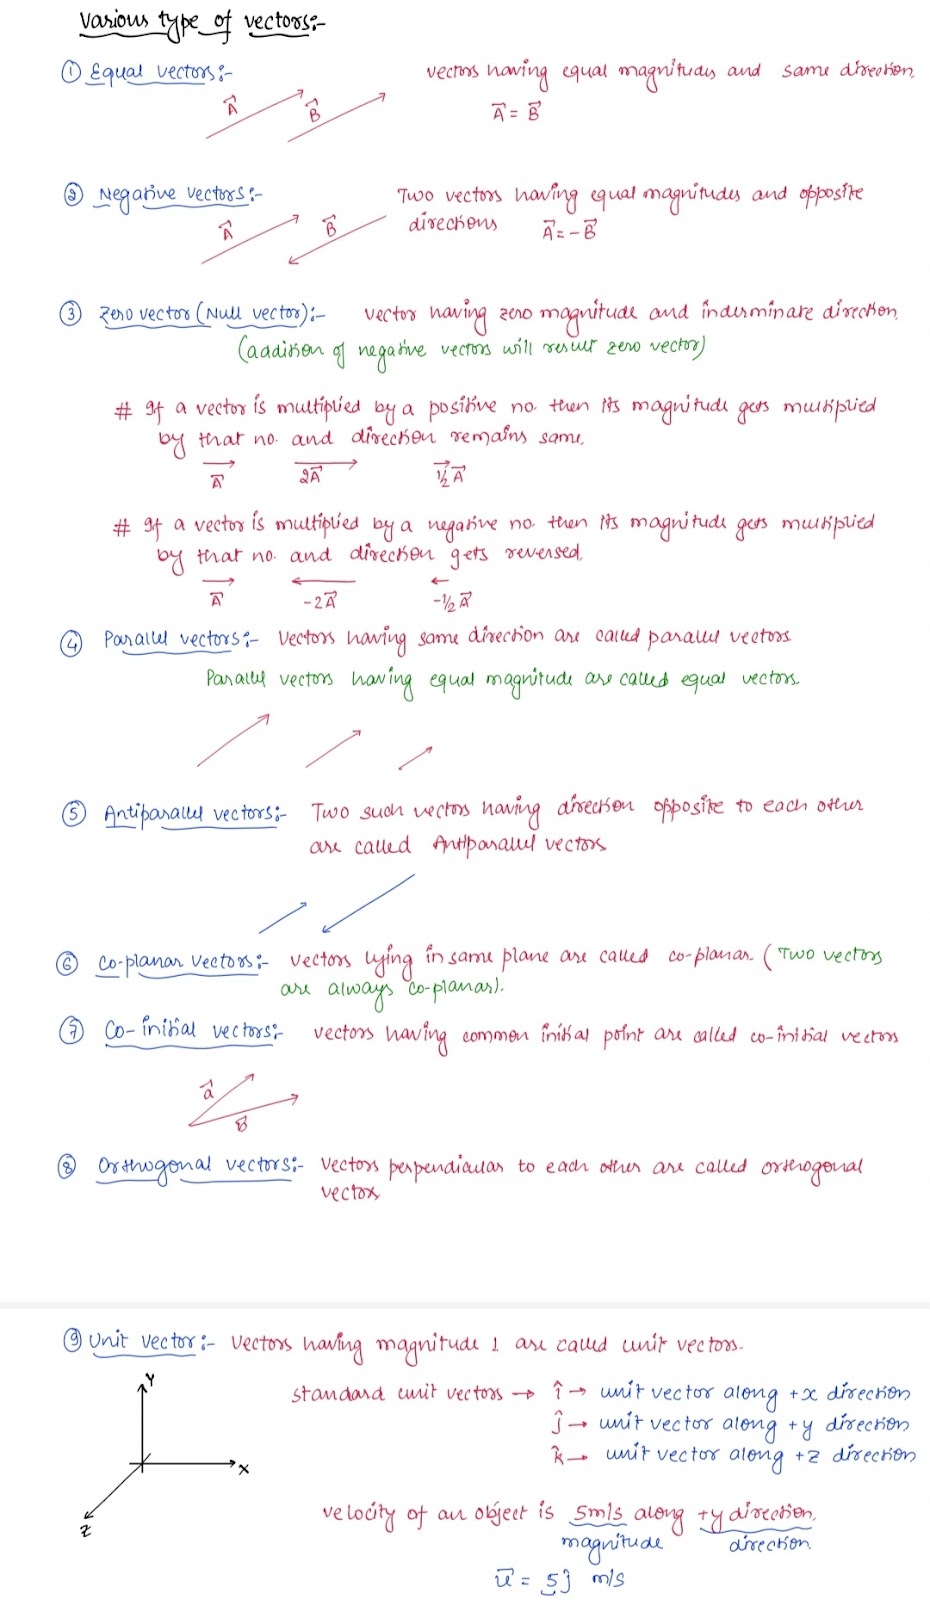 Various type of vectors:-
① Equal vectors:- vectors having equal magnitudes and same direction.
A⃗ B⃗ A⃗ = B⃗
② Negative vectors:- Two vectors having equal magnitudes and opposite
directions A⃗ = -B⃗
A⃗ B⃗
③ Zero vector (Null vector):- vector having zero magnitude and inderminate direction.
(addition of negative vectors will result zero vector)
# If a vector is multiplied by a positive no. then its magnitude gets multiplied
by that no. and direction remains same.
A⃗ 2A⃗ 1/2 A⃗
# If a vector is multiplied by a negative no. then its magnitude gets multiplied
by that no. and direction gets reversed.
A⃗ -2A⃗ -1/2 A⃗
④ Parallel vectors:- Vectors having same direction are called parallel vectors
Parallel vectors having equal magnitude are called equal vectors.
⑤ Antiparallel vectors:- Two such vectors having direction opposite to each other
are called Antiparallel vectors
⑥ Co-planar vectors:- vectors lying in same plane are called co-planar. (Two vectors
are always co-planar).
⑦ Co-initial vectors:- vectors having common initial point are called co-initial vectors
a⃗
B⃗
⑧ Orthogonal vectors:- Vectors perpendicular to each other are called orthogonal
vectors
⑨ Unit vector:- Vectors having magnitude 1 are called unit vectors.
Y
X
Z
standard unit vectors → î → unit vector along +x direction
ĵ → unit vector along +y direction
k̂ → unit vector along +z direction
velocity of an object is 5m/s along +y direction.
magnitude direction
u⃗ = 5ĵ m/s